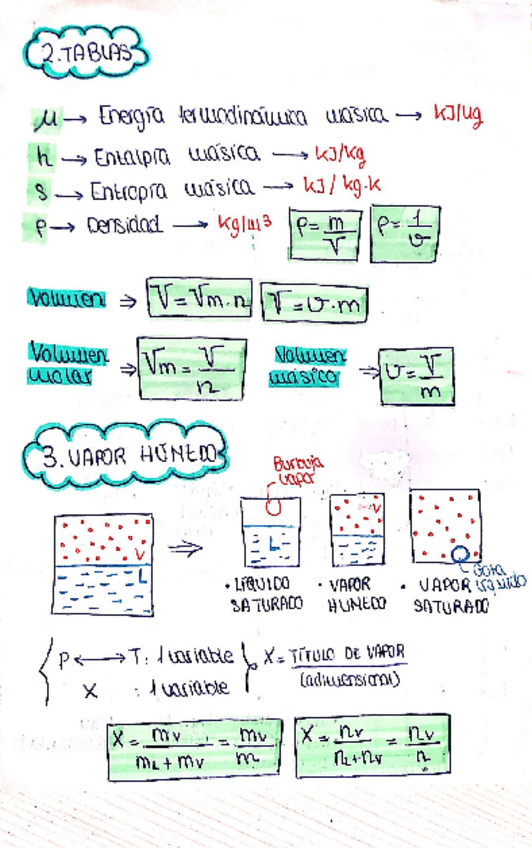 2. TABLAS
μ → Energía termodinámica másica → kJ/kg
h → Entalpía másica → kJ/kg
s → Entropía másica → kJ/kg·K
ρ → Densidad → kg/m³ ρ = m/V ρ = 1/v
Volumen ⇒ V = Vm·n V = v·m
Volumen molar ⇒ Vm = V/n Volumen másico ⇒ v = V/m
3. VAPOR HÚMEDO
Burbuja vapor
V
L
⇒
L
V
L
Gota líquido
· LÍQUIDO SATURADO · VAPOR HÚMEDO · VAPOR SATURADO
P ⟷ T : 1 variable
X : 1 variable
X = TÍTULO DE VAPOR
(adimensional)
X = mv/(mL + mv) = mv/m X = nv/(nL + nv) = nv/n